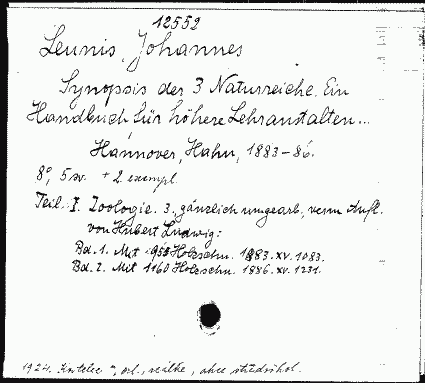 12552
Leunis, Johannes
Synopsis der 3 Naturreiche. Ein
Handbuch für höhere Lehranstalten...
Hannover, Hahn, 1883-86.
8°, 5 sv. + 2 exempl.
Teil. I. Zoologie. 3., gänzlich umgearb., verm. Aufl.
von Hubert Ludwig:
Bd. 1. Mit 955 Holzschn. 1883. XV. 1083.
Bd. 2. Mit 1160 Holzschn. 1886. XV. 1231.
1924.